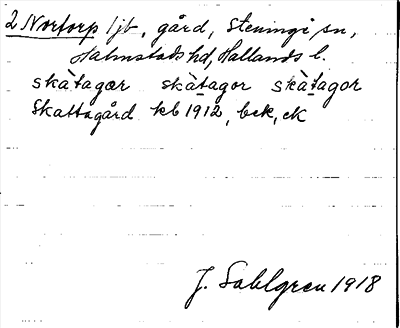 2 Nortorp ljb, gård, Steninge sn,
Halmstads hd, Hallands l.
skàtagær skàtagor skàtagor
Skattagård kb 1912, bek, ek
J. Sahlgren 1918